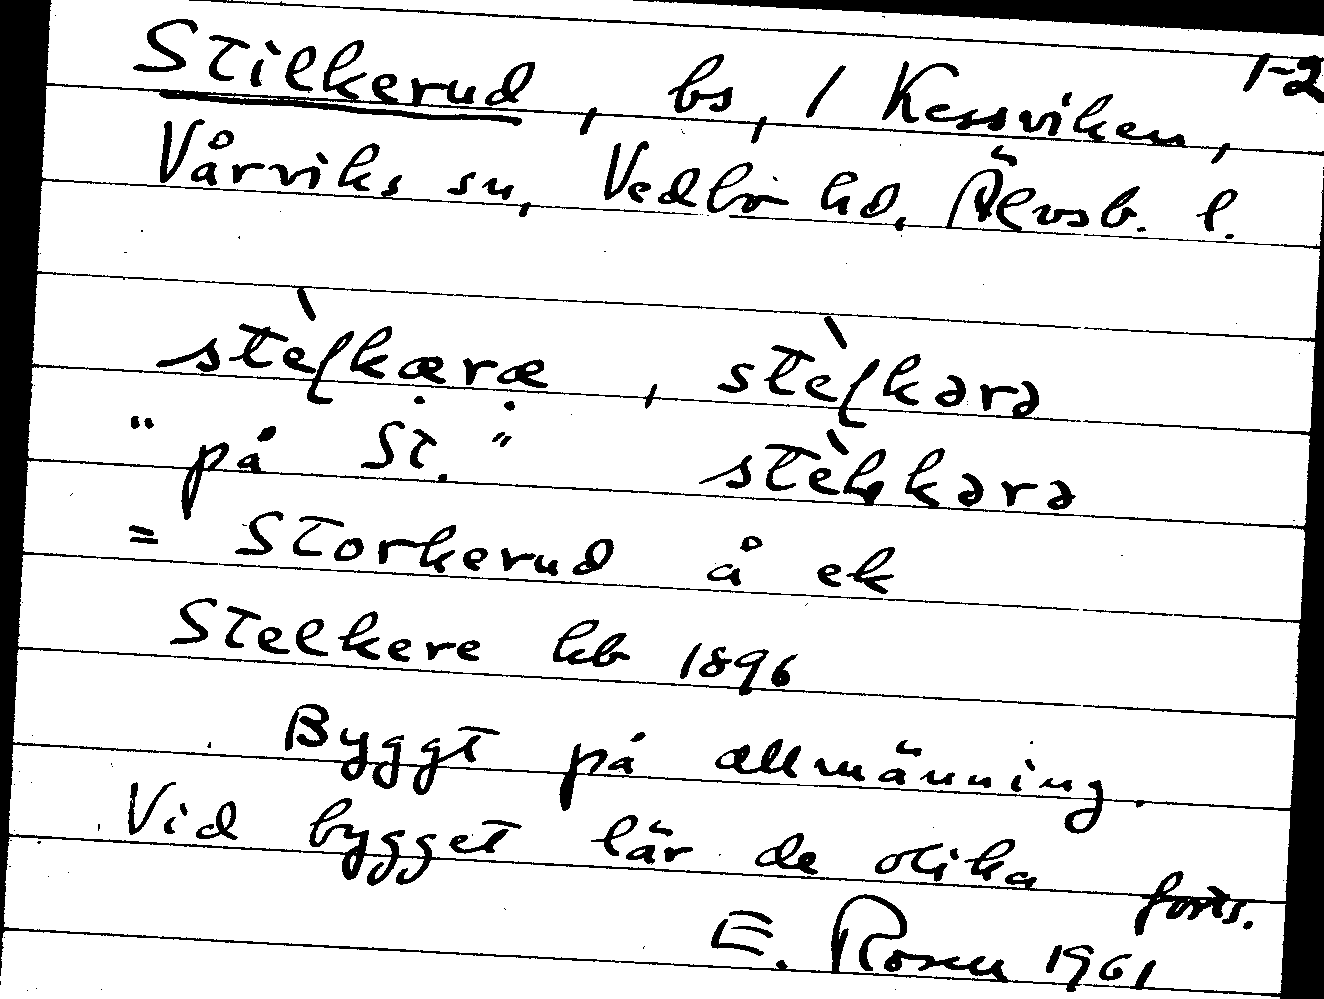 1-2
Stilkerud, bs, 1 Kessviken,
Vårviks sn, Vedbo hd, Älvsb. l.
stèlkæræ, stèlkərə
"på St." stèkkərə
= Storkerud å ek
Stelkere kb 1896
Byggt på allmänning.
Vid bygget lär de olika forts.
E. Rosen 1961